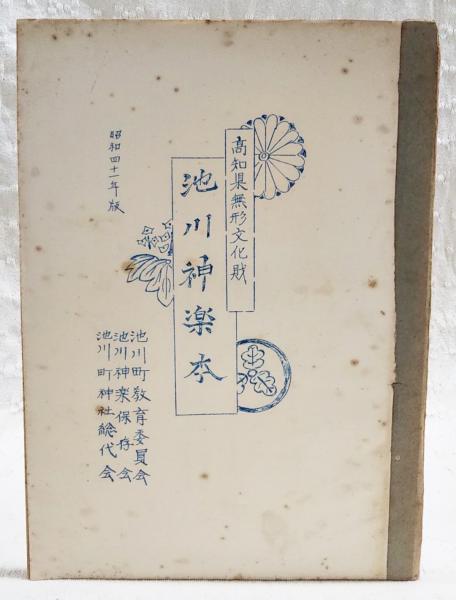 高知県無形文化財
池川神楽本
昭和四十一年版
池川町教育委員会
池川神楽保存会
池川町神社総代会